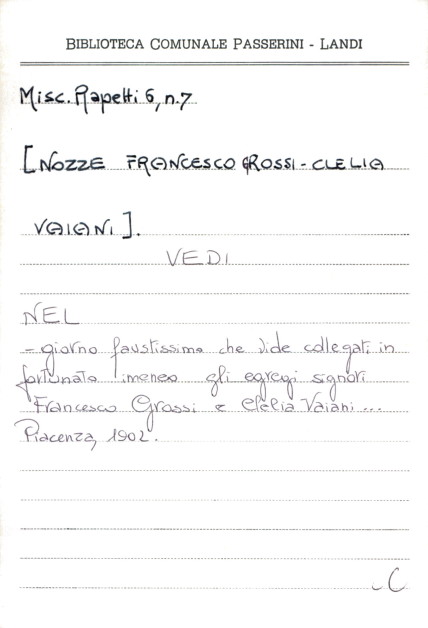 BIBLIOTECA COMUNALE PASSERINI - LANDI
Misc. Rapetti 6, n.7
[NOZZE FRANCESCO GROSSI - CLELIA
VAIANI].
VEDI
NEL
- giorno faustissimo che vide collegati in
fortunato imeneo gli egregi signori
Francesco Grossi e Clelia Vaiani...
Piacenza, 1902.
C